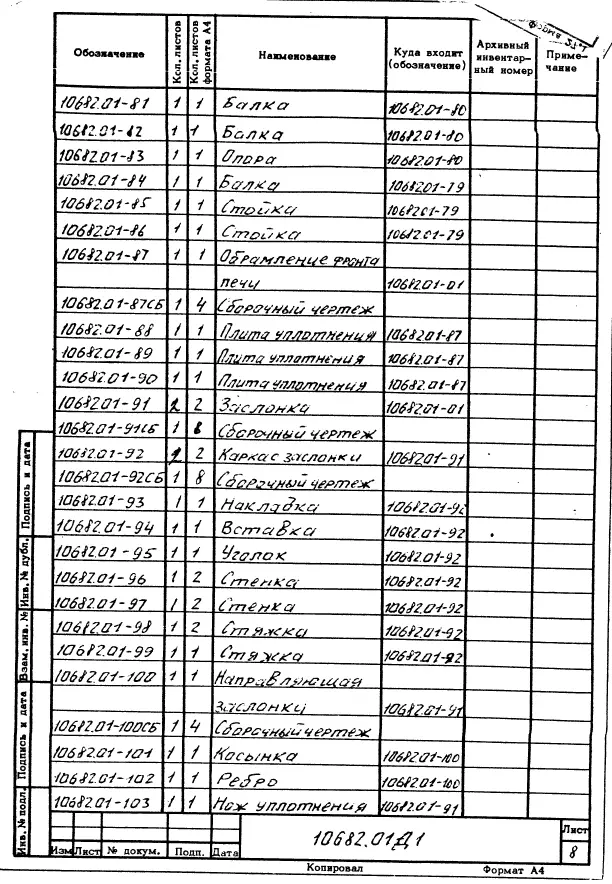 Форма 5 гл
Обозначение | Кол. листов | Кол. листов формата А4 | Наименование | Куда входит (обозначение) | Архивный инвентарный номер | Примечание
10682.01-81 1 1 Балка 10682.01-80
10682.01-82 1 1 Балка 10682.01-80
10682.01-83 1 1 Опора 10682.01-80
10682.01-84 1 1 Балка 10682.01-79
10682.01-85 1 1 Стойка 10682.01-79
10682.01-86 1 1 Стойка 10682.01-79
10682.01-87 1 1 Обрамление фронта
печи 10682.01-01
10682.01-87СБ 1 4 Сборочный чертеж
10682.01-88 1 1 Плита уплотнения 10682.01-87
10682.01-89 1 1 Плита уплотнения 10682.01-87
10682.01-90 1 1 Плита уплотнения 10682.01-87
10682.01-91 2 2 Заслонка 10682.01-01
10682.01-91СБ 1 8 Сборочный чертеж
10682.01-92 2 2 Каркас заслонки 10682.01-91
10682.01-92СБ 1 8 Сборочный чертеж
10682.01-93 1 1 Накладка 10682.01-92
10682.01-94 1 1 Вставка 10682.01-92
10682.01-95 1 1 Уголок 10682.01-92
10682.01-96 1 2 Стенка 10682.01-92
10682.01-97 1 2 Стенка 10682.01-92
10682.01-98 1 2 Стяжка 10682.01-92
10682.01-99 1 1 Стяжка 10682.01-92
10682.01-100 1 1 Направляющая
заслонки 10682.01-91
10682.01-100СБ 1 4 Сборочный чертеж
10682.01-101 1 1 Косынка 10682.01-100
10682.01-102 1 1 Ребро 10682.01-100
10682.01-103 1 1 Нож уплотнения 10682.01-91
Инв. № подл. Подпись и дата Взам. инв. № Инв. № дубл. Подпись и дата
10682.01Д1
Лист
8
Изм Лист № докум. Подп. Дата
Копировал Формат А4